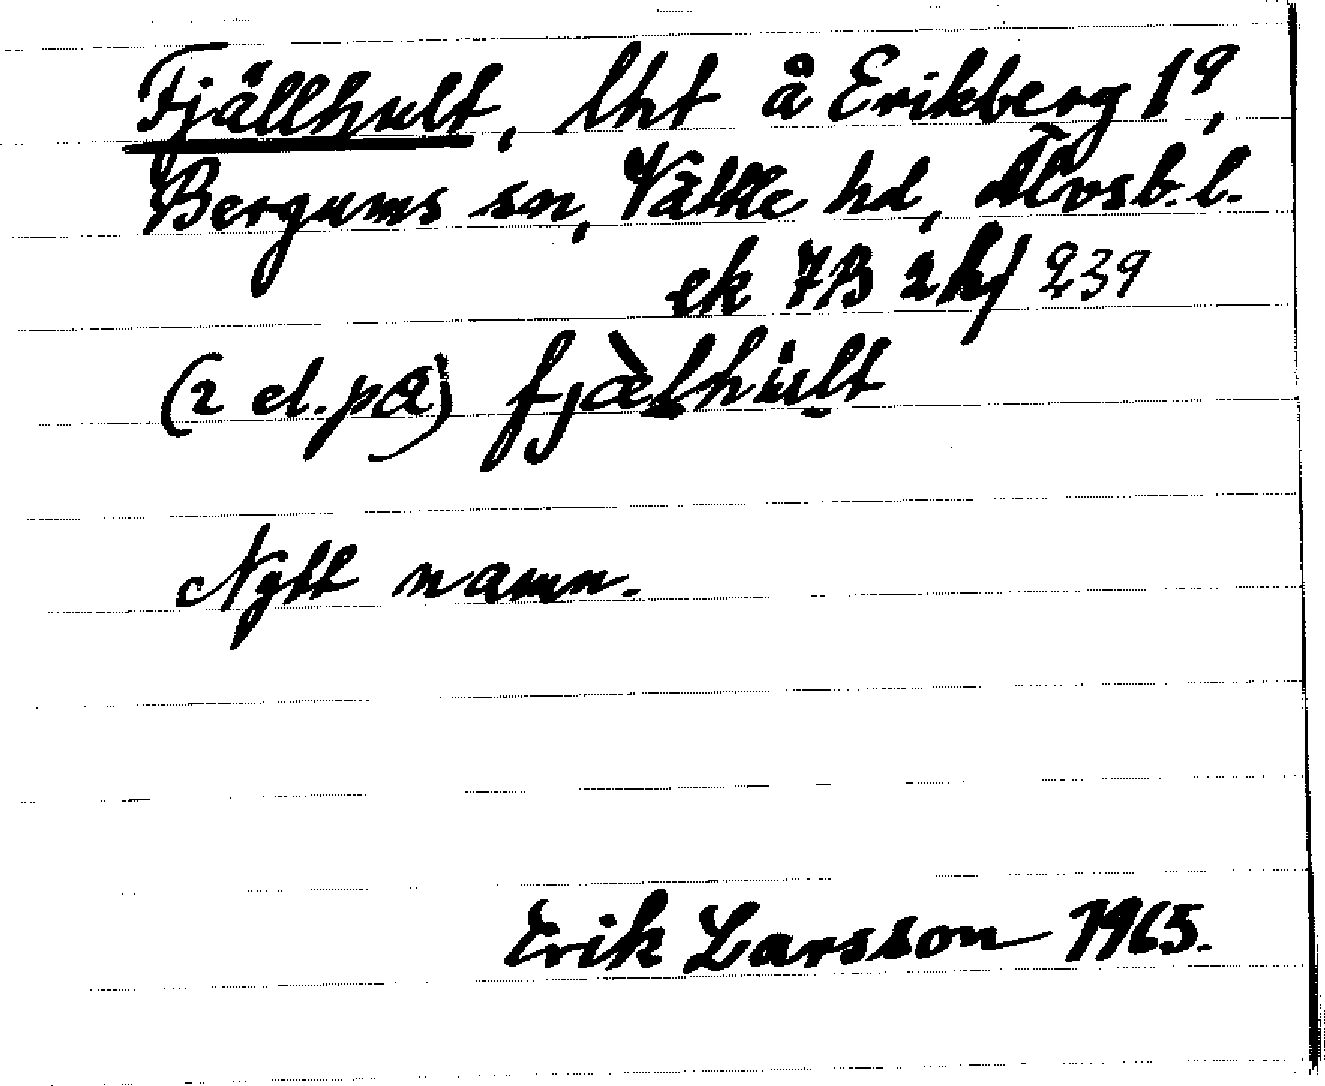 Fjällhult, lht å Erikberg 1⁹,
Bergums sn, Vättle hd, Älvsb. l.
ek 7B 2hj 239
(2 el. på) fjælhult
Nytt namn.
Erik Larsson 1965.